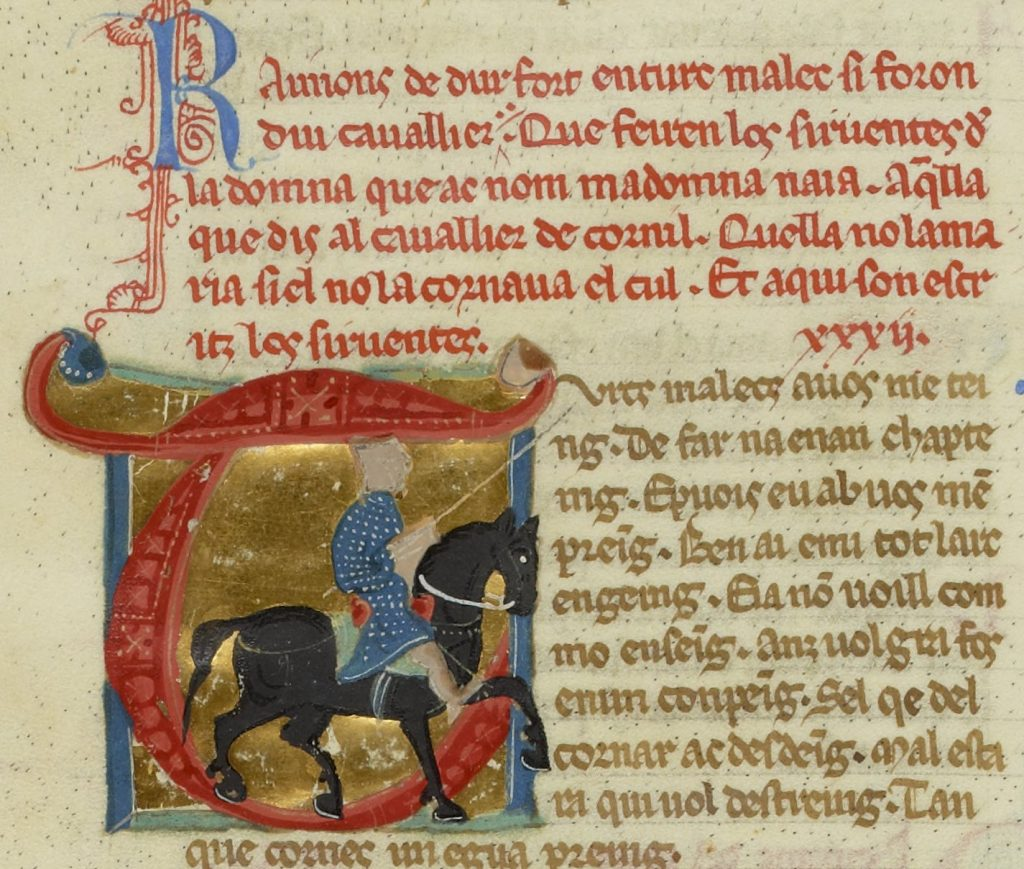 Raimons de dur fort enturc malec si foron
dui cauallier. Que feiren los siruentes d̃
la domna que ac nom madomna naia. Aq̃lla
que dis al cauallier de cornil. Quella nolama
ria si el nola cornaua el cul. Et aqui son escr
itz los siruentes. xxxii.
Turcs malecs auos me tei
ng. De far na enan chapte
nig. E puois eu ab uos mẽ
prẽig. Ben ai emi tot larc
engeing. Eia nõ uoill com
mo ensẽig. Anz uolgra fos
enun conpẽig. Sel qe del
cornar ac desdẽig. Mal esta
ra qui uol destreing. Tan
que cornes un egua preing.